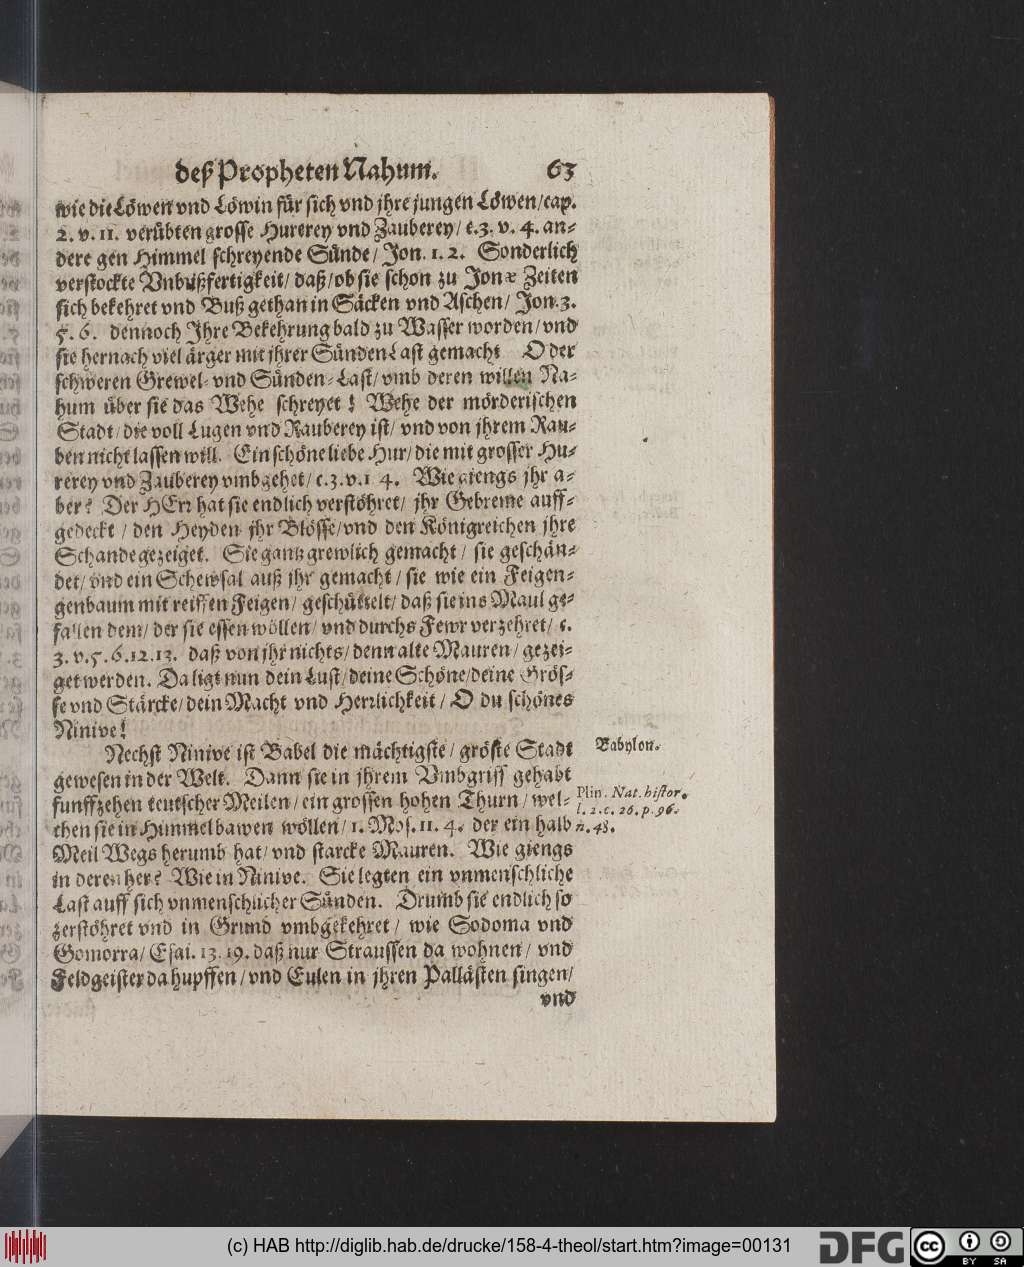 deß Propheten Nahum. 63
wie die Löwen vnd Löwin für sich vnd jhre jungen Löwen/cap.
2. v. 11. verübten grosse Hurerey vnd Zauberey/ c.3. v. 4. an-
dere gen Himmel schreyende Sünde/ Jon. 1. 2. Sonderlich
verstockte Vnbußfertigkeit/ daß/ ob sie schon zu Jonæ Zeiten
sich bekehret vnd Buß gethan in Säcken vnd Aschen/ Jon. 3.
5. 6. dennoch Jhre Bekehrung bald zu Wasser worden/ vnd
sie hernach viel ärger mit jhrer Sünden Last gemacht O der
schweren Grewel- vnd Sünden-Last/ vmb deren willen Na-
hum über sie das Wehe schreyet! Wehe der mörderischen
Stadt/ die voll Lugen vnd Rauberey ist/ vnd von jhrem Rau-
ben nicht lassen will. Ein schöne liebe Hur/ die mit grosser Hu-
rerey vnd Zauberey vmbgehet/ c. 3. v. 1 4. Wie giengs jhr a-
ber? Der HErr hat sie endlich verstöhret/ jhr Gebreme auff-
gedeckt / den Heyden jhr Blösse/ vnd den Königreichen jhre
Schande gezeiget. Sie gantz grewlich gemacht / sie geschän-
det/ vnd ein Schewsal auß jhr gemacht / sie wie ein Feigen-
genbaum mit reiffen Feigen/ geschüttelt/ daß sie ins Maul ge-
fallen dem/ der sie essen wöllen/ vnd durchs Fewr verzehret/ c.
3. v. 5. 6. 12. 13. daß von jhr nichts/ denn alte Mauren/ gezei-
get werden. Da ligt nun dein Lust/ deine Schöne/ deine Grös-
se vnd Stärcke/ dein Macht vnd Herrlichkeit/ O du schönes
Ninive!
Nechst Ninive ist Babel die mächtigste/ gröste Stadt
Babylon.
gewesen in der Welt. Dann sie in jhrem Vmbgriff gehabt
funffzehen teutscher Meilen/ ein grossen hohen Thurn/ wel-
Plin. Nat. histor.
l. 2. c. 26. p. 96.
n. 48.
chen sie in Himmel bawen wöllen/ 1. Mos. 11. 4. der ein halb
Meil Wegs herumb hat/ vnd starcke Mauren. Wie giengs
in deren her? Wie in Ninive. Sie legten ein vnmenschliche
Last auff sich vnmenschlicher Sünden. Drumb sie endlich so
zerstöhret vnd in Grund vmbgekehret/ wie Sodoma vnd
Gomorra/ Esai. 13. 19. daß nur Straussen da wohnen/ vnd
Feldgeister da hupffen/ vnd Eulen in jhren Pallästen singen/
vnd
(c) HAB http://diglib.hab.de/drucke/158-4-theol/start.htm?image=00131
DFG
cc BY SA